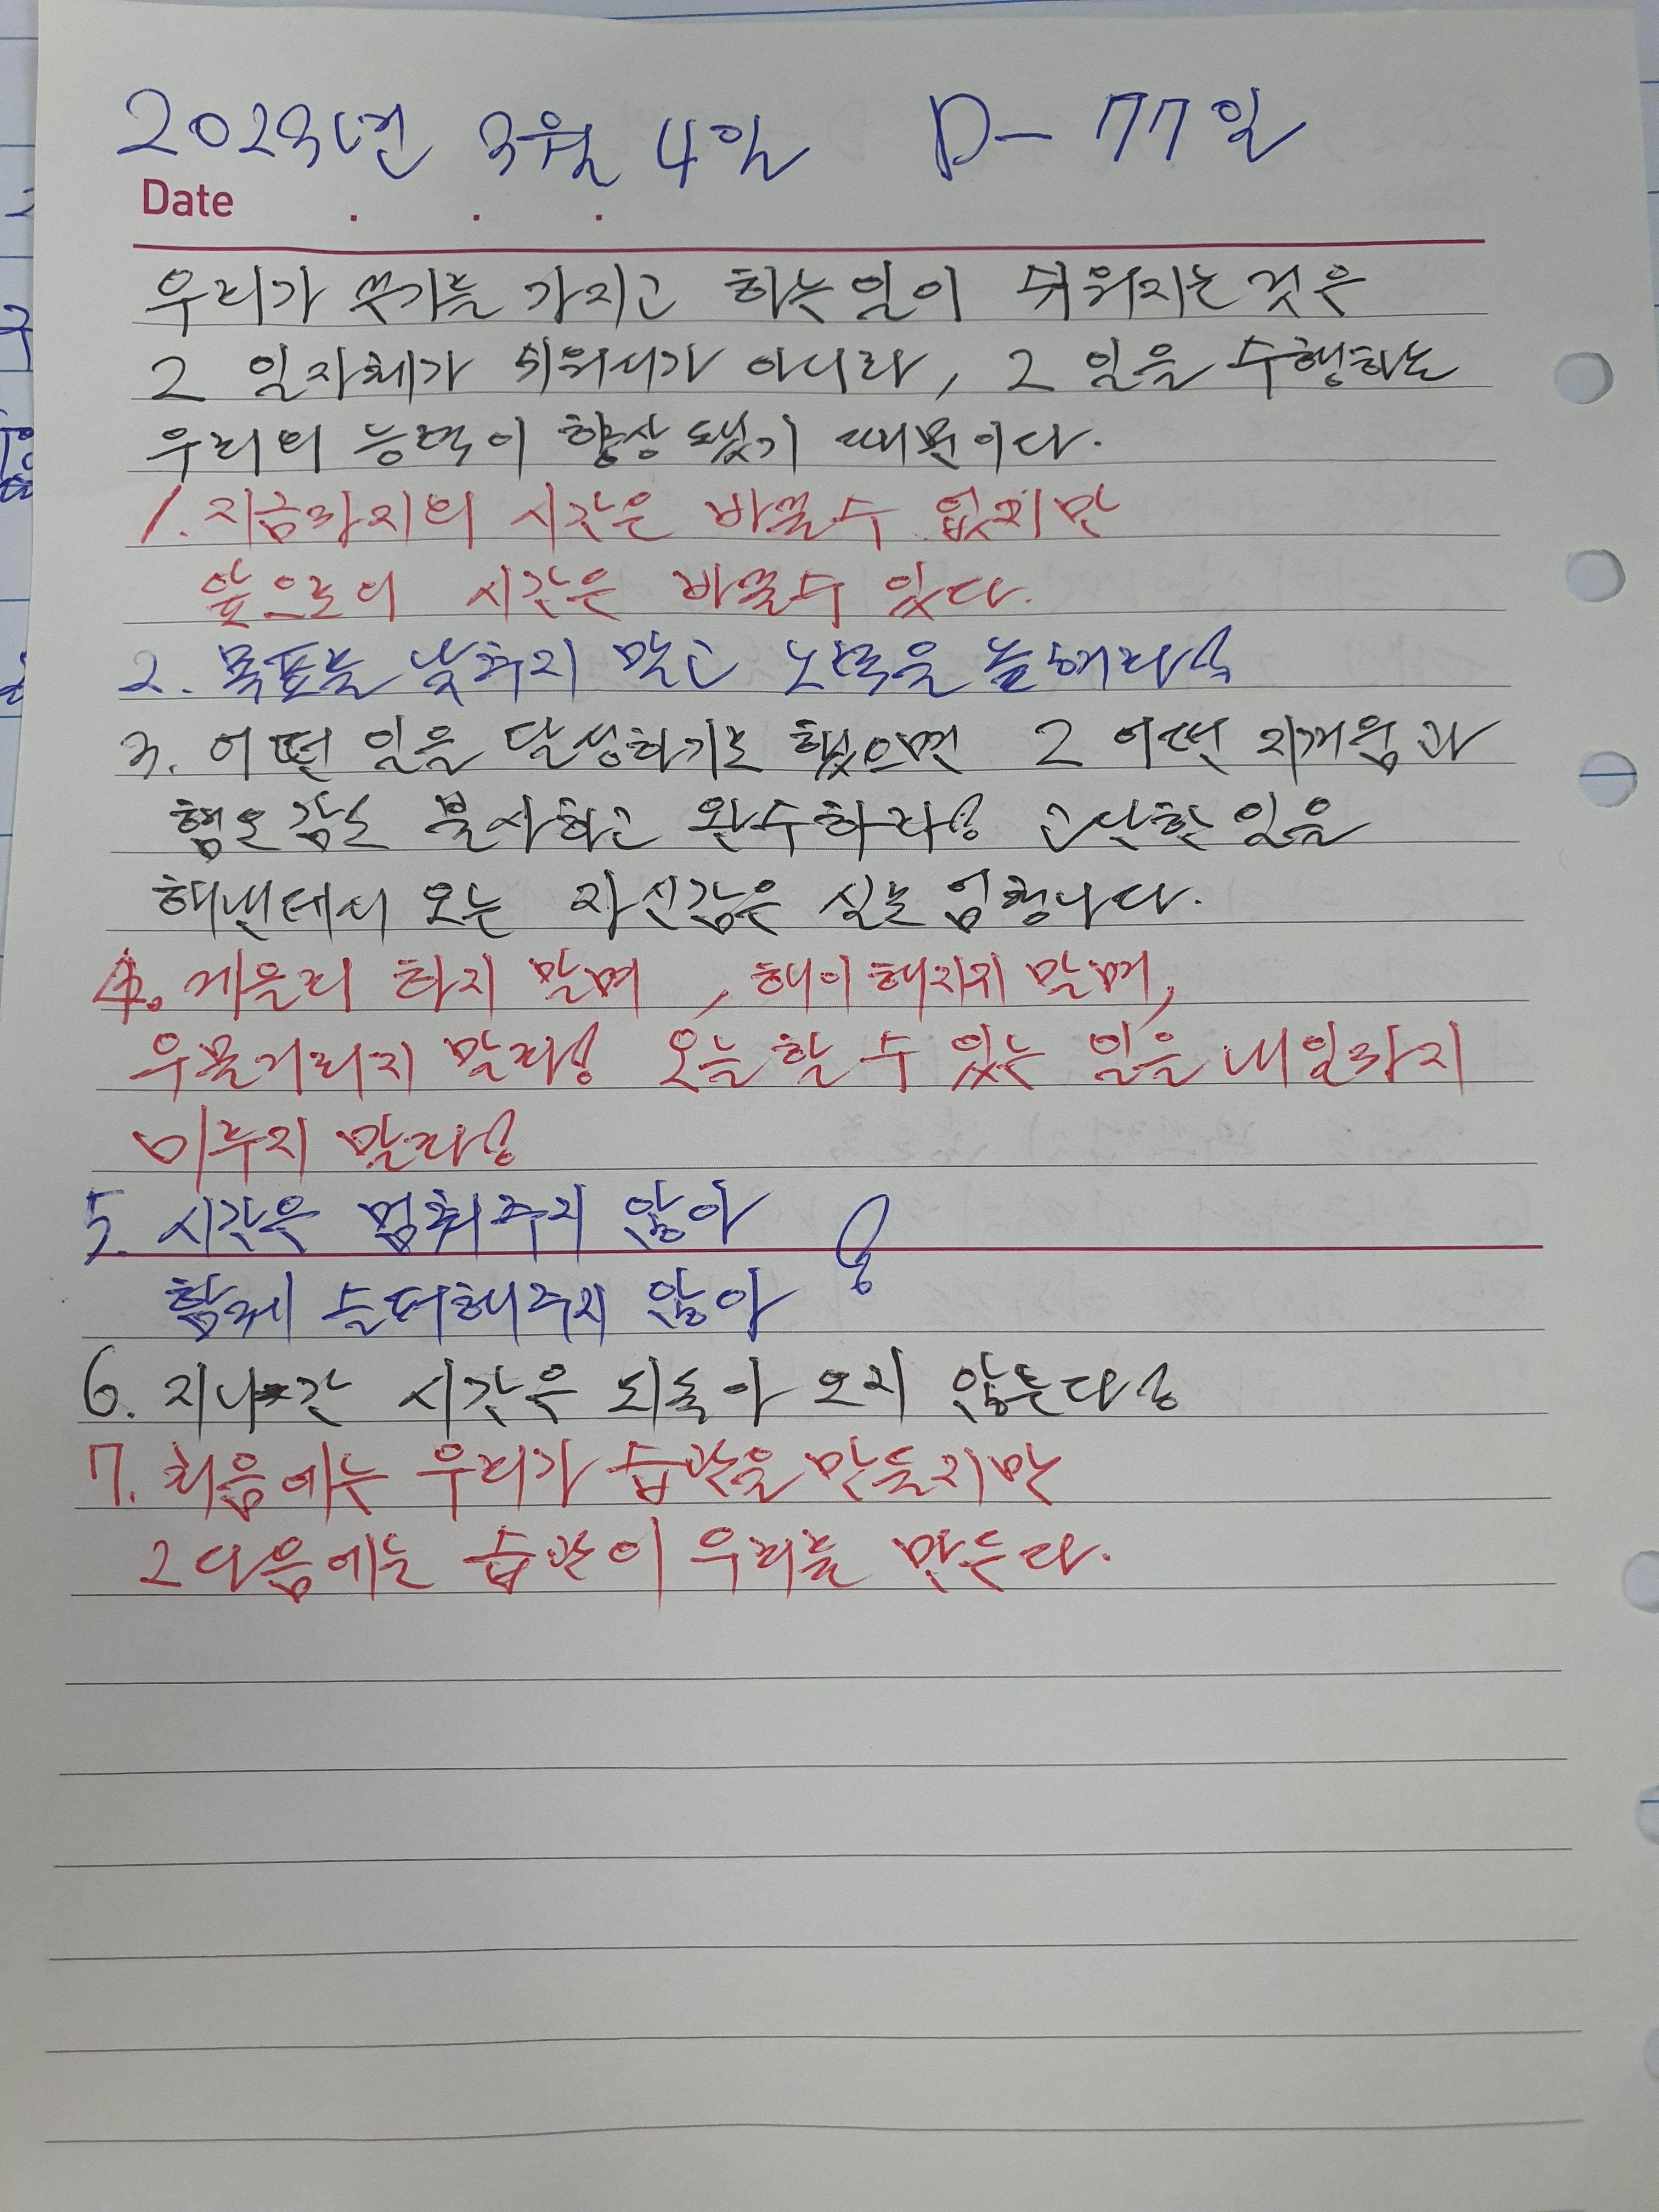 2023년 3월 4일 D- 77일
Date . . .
우리가 끈기를 가지고 하는 일이 쉬워지는 것은
그 일자체가 쉬워서가 아니라, 그 일을 수행하는
우리의 능력이 향상됐기 때문이다.
1. 지금까지의 시간은 바꿀수 없지만
앞으로의 시간은 바꿀수 있다.
2. 목표를 낮추지 말고 노력을 늘해라!
3. 어떤 일을 달성하기로 했으면 그 어떤 지겨움과
혐오감도 불사하고 완수하라! 고단한 일을
해낸데서 오는 자신감은 실로 엄청나다.
4. 게을리 하지 말며, 해이해지지 말며,
우물거리지 말라! 오늘 할 수 있는 일을 내일까지
미루지 말라!
5. 시간은 멈춰주지 않아 !
함께 슬퍼해주지 않아
6. 지나간 시간은 되돌아 오지 않는다!
7. 처음에는 우리가 습관을 만들지만
그다음에는 습관이 우리를 만든다.